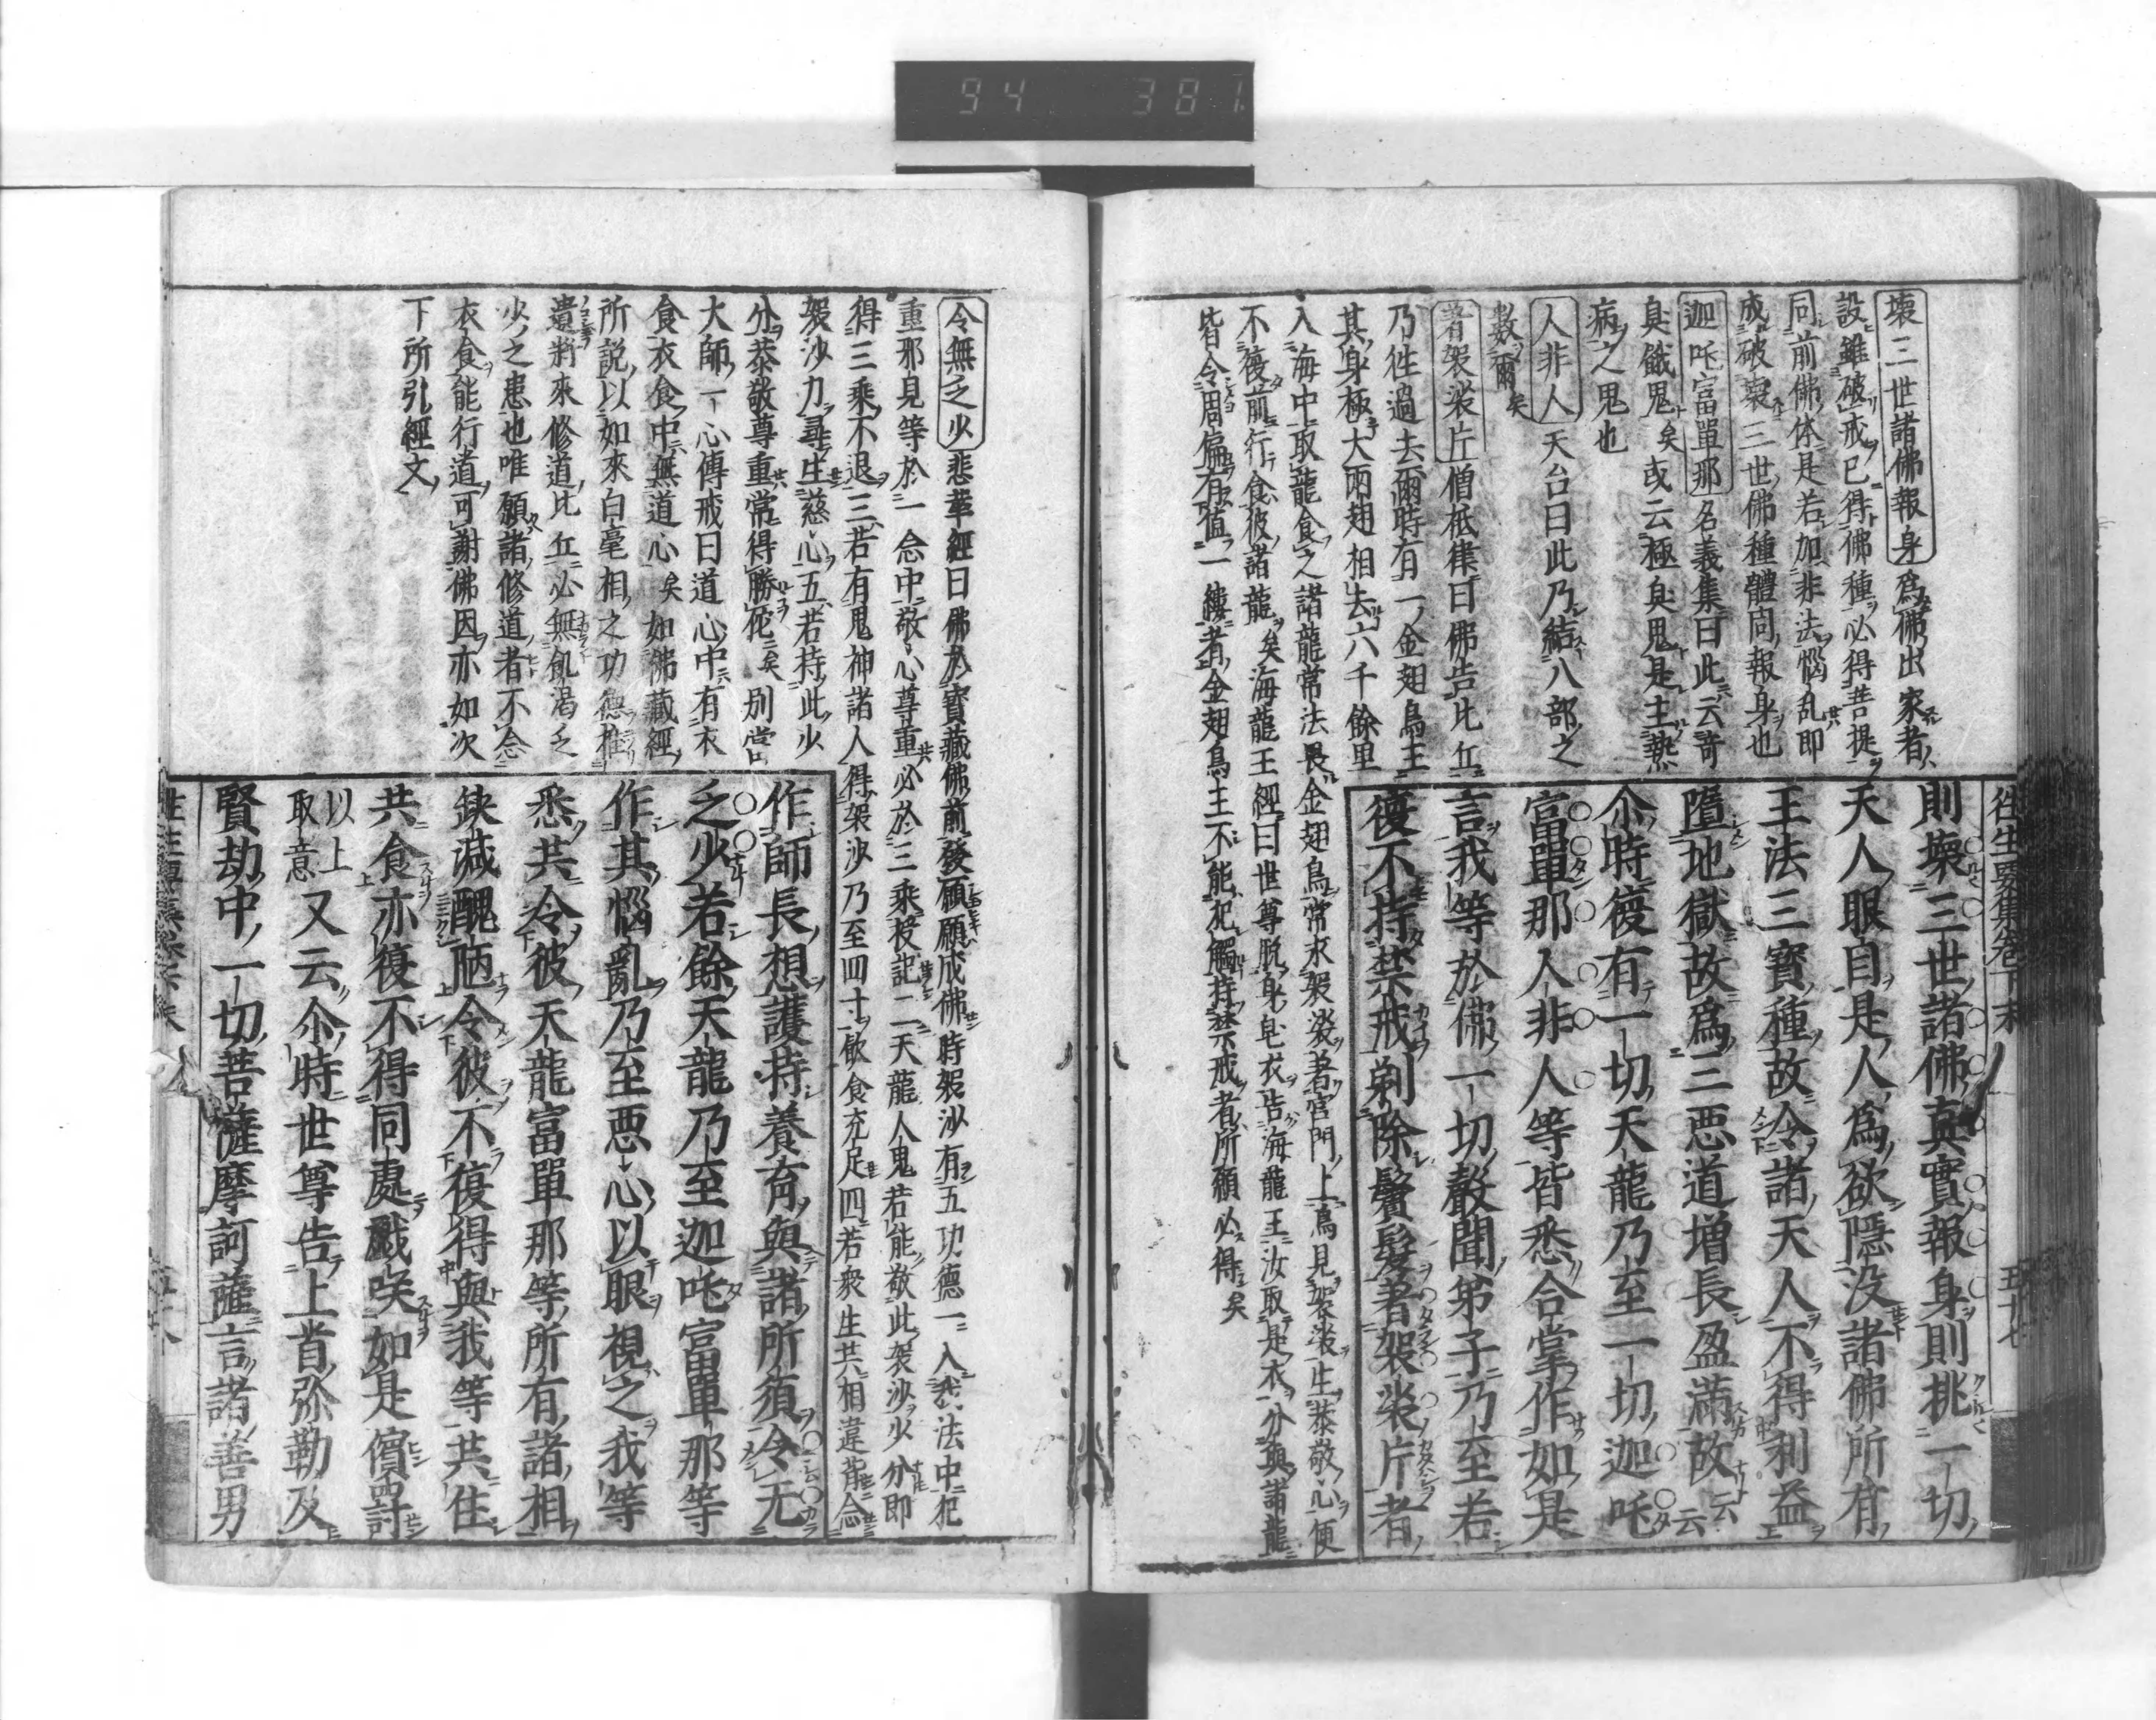 94 381
往生要集卷下末 五十七
壞三世諸佛報身 爲佛出家者
設雖破戒已得佛種必得菩提
同前佛体是若加非法惱乱即
成破壞三世佛種體同報身也
迦吒富單那 名義集曰此云奇
臭餓鬼矣或云極臭鬼是主熱
病之鬼也
人非人 天台曰此乃結八部之
數爾矣
著袈裟片 僧祇律曰佛告比丘
乃徃過去爾時有一金翅鳥王
其身極大兩翅相去六千餘里
入海中取龍食之諸龍常法畏金翅鳥常求袈裟著宮門上鳥見袈裟生恭敬心便
不復前行食彼諸龍矣海龍王經曰世尊脱身皀衣告海龍王汝取是衣分與諸龍
皆令周偏有値一縷者金翅鳥王不能犯觸持禁戒者所願必得矣
則壞三世諸佛眞實報身則挑一切
天人眼目是人爲欲隱没諸佛所有
王法三寳種故令諸天人不得利益
墮地獄故爲三悪道増長盈滿故云云
尒時復有一切天龍乃至一切迦吒
富單那人非人等皆悉合掌作如是
言我等於佛一切聲聞弟子乃至若
復不持禁戒剃除鬢髮著袈裟片者
令無乏少 悲華經曰佛於寶藏佛前發願願成佛時袈沙有五功德一入我法中犯
重邪見等於一念中敬心尊重必於三乘授記二天龍人鬼若能敬此袈沙少分即
得三乘不退三若有鬼神諸人得袈沙乃至四寸飲食充足四若衆生共相違背念
袈沙力尋生慈心五若持此少
分恭敬尊重常得勝佗矣別當
大師一心傳戒曰道心中有衣
食衣食中無道心矣如佛藏經
所説以如來白毫相之功德推
遺將來修道比丘必無飢渇乏
少之患也唯願諸修道者不念
衣食能行道可謝佛因亦如次
下所引經文
作師長想護持養育與諸所須令无
乏少若餘天龍乃至迦吒富單那等
作其惱亂乃至悪心以眼視之我等
悉共令彼天龍富單那等所有諸相
缺減醜陋令彼不復得與我等共住
共食亦復不得同處戲咲如是擯罸
以上
取意
又云尒時世尊告上首弥勒及
賢劫中一切菩薩摩訶薩言諸善男